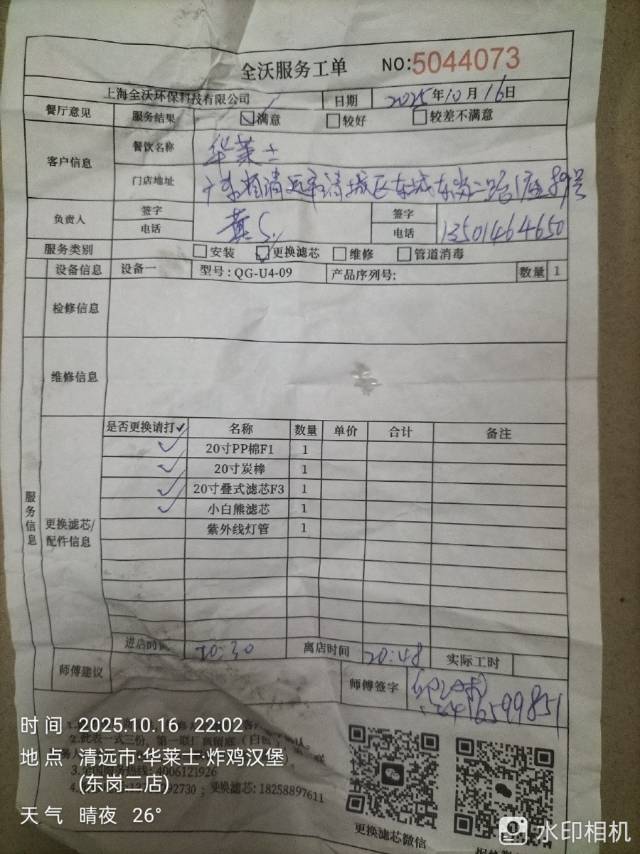 全沃服务工单 NO:5044073
上海全沃环保科技有限公司 日期 2025年10月16日
餐厅意见 服务结果 满意 较好 较差不满意
客户信息 餐饮名称 华莱士
门店地址 广东省清远市清城区东城东岗二路1座89号
负责人 签字 电话 签字 电话 13501464650
服务类别 安装 更换滤芯 维修 管道消毒
设备信息 设备一 型号:QG-U4-09 产品序列号: 数量 1
检修信息
维修信息
服务信息
更换滤芯/配件信息
是否更换请打✓ 名称 数量 单价 合计 备注
✓ 20寸PP棉F1 1
✓ 20寸炭棒 1
✓ 20寸叠式滤芯F3 1
✓ 小白熊滤芯 1
紫外线灯管 1
进店时间 20:30 离店时间 20:48 实际工时
师傅建议 师傅签字
2.此表一式三份,第一联
4006121926
92730;更换滤芯:18258897611
更换滤芯微信
时间 2025.10.16 22:02
地点 清远市·华莱士·炸鸡汉堡
(东岗二店)
天气 晴夜 26°
水印相机